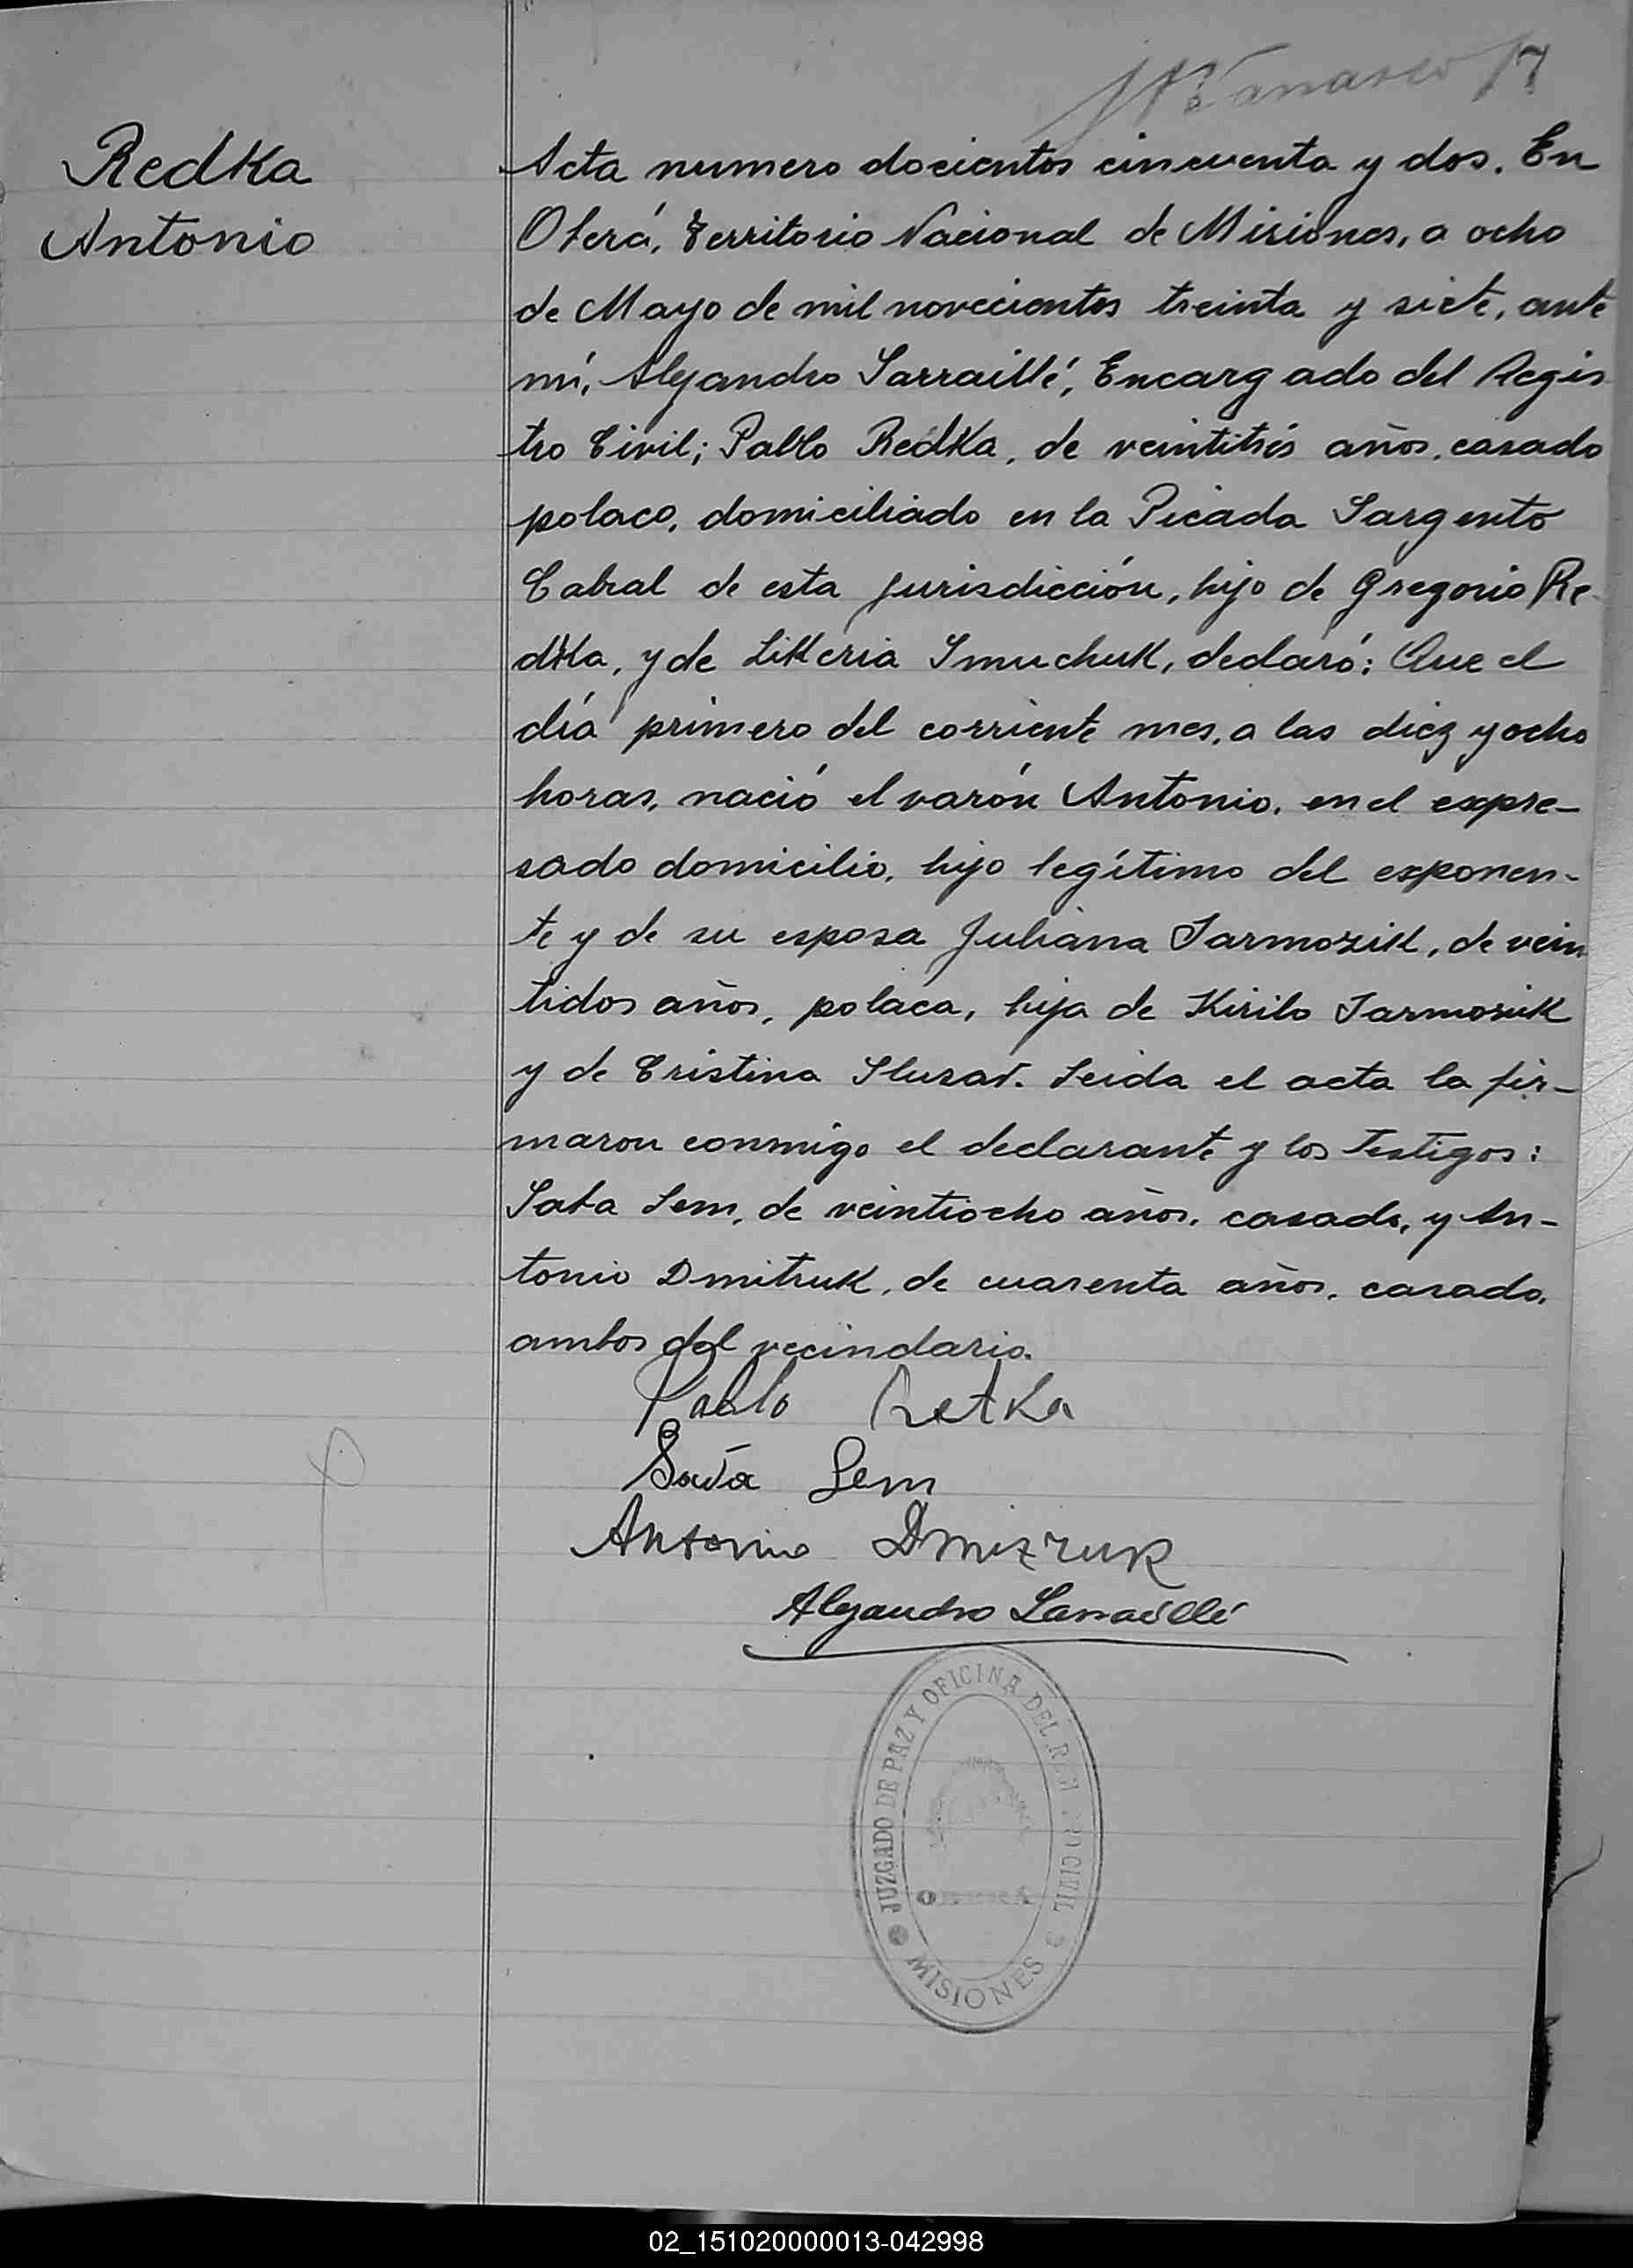 Redka
Antonio
Acta numero docientos cincuenta y dos. En
Oberá, Territorio Nacional de Misiones, a ocho
de Mayo de mil novecientos treinta y siete, ante
mí, Alejandro Sarraillé, Encargado del Regis
tro Civil; Pablo Redka, de veintitrés años, casado
polaco, domiciliado en la Picada Sargento
Cabral de esta jurisdicción, hijo de Gregorio Re-
dka, y de Likeria Smuchuk, declaró: Que el
día primero del corriente mes, a las diez y ocho
horas, nació el varón Antonio, en el expre-
sado domicilio, hijo legítimo del exponen-
te y de su esposa Juliana Jarmozik, de vein
tidos años, polaca, hija de Kirilo Jarmosuk
y de Cristina Slusar. Leida el acta la fir-
maron conmigo el declarante y los testigos:
Saba Sem, de veintiocho años, casado, y An-
tonio Dmitruk, de cuarenta años, casado,
ambos del vecindario.
Pablo Retka
Sava Sem
Antonio Dmizruk
Alejandro Sarraillé
JUZGADO DE PAZ Y OFICINA DEL CIVIL
MISIONES
02_151020000013-042998